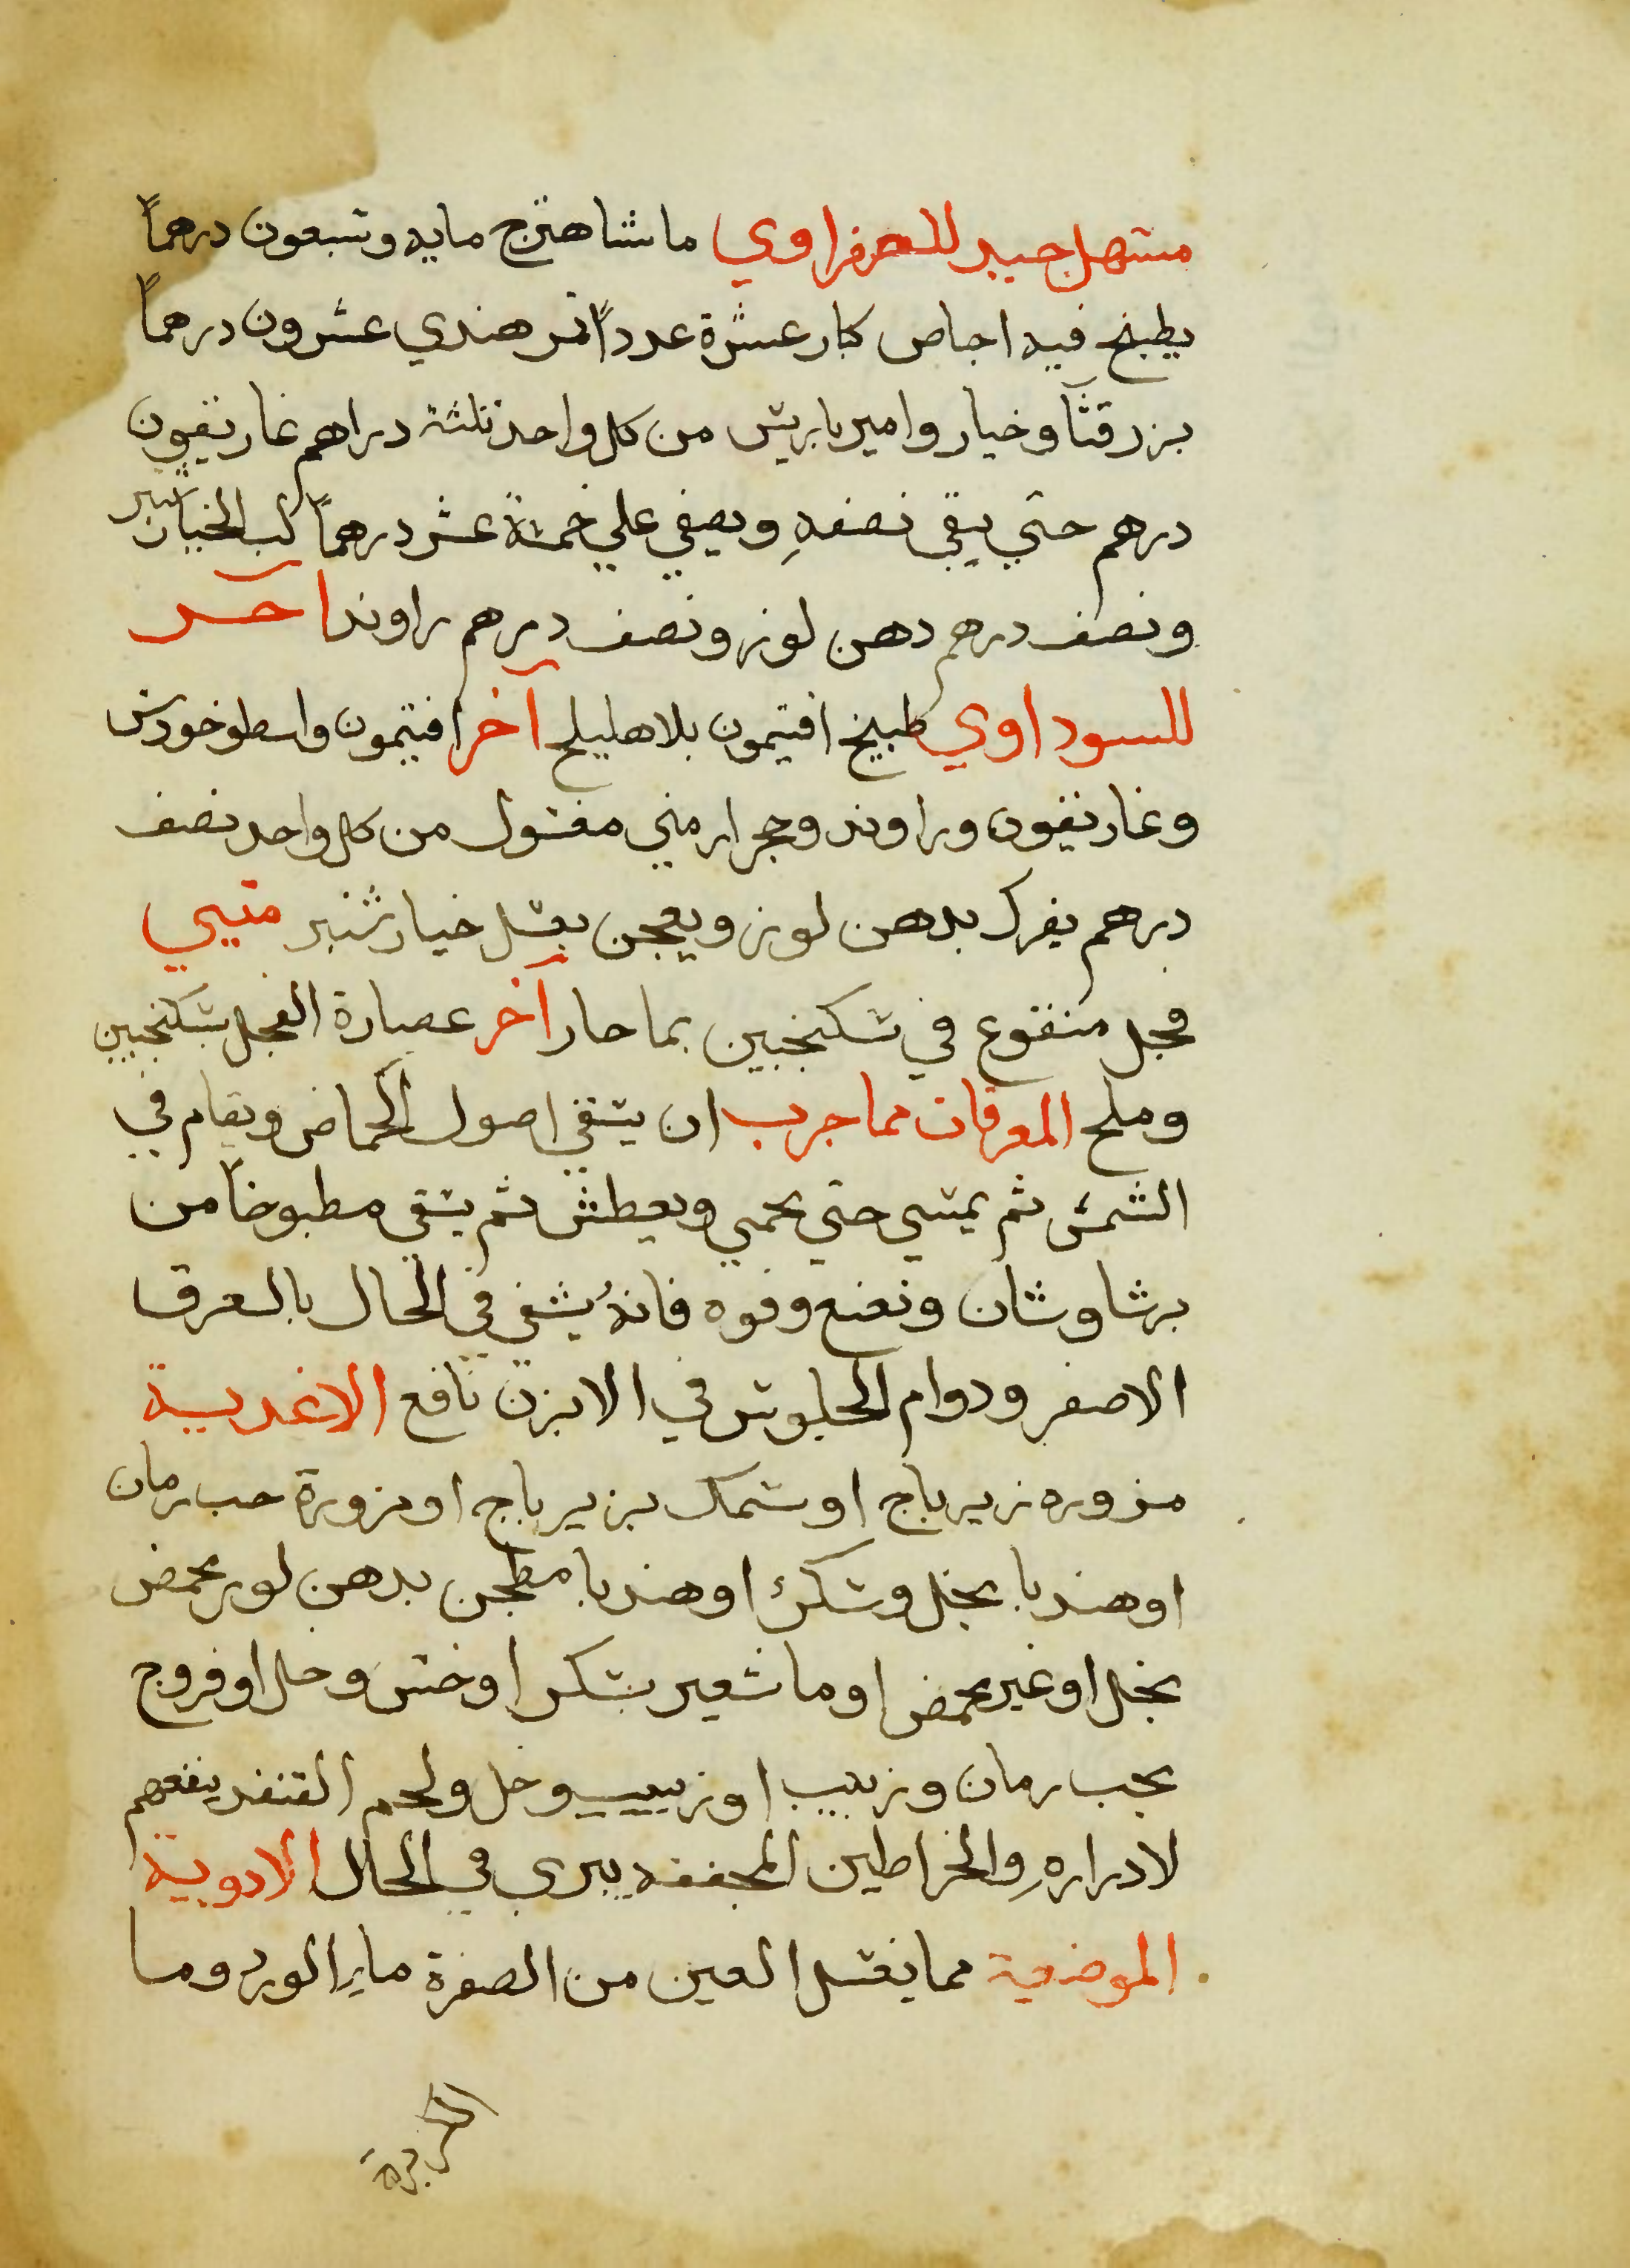 مسهل جيد للصفراوي ما شاهترج مايه وتسعون درهماً
يطبخ فيه اجاص كبار عشرة عدداً تمر هندي عشرون درهماً
بزر قثآ وخيار وامير باريس من كل واحد ثلثة دراهم غاريقون
درهم حتي يبقي نصفهِ ويصفي علي خمسة عشر درهماً لب الخيار شنبر
ونصف درهم دهن لوز ونصف درهم راوند آخر
للسوداوي طبيخ افتيمون بلا هليلج آخر افتيمون واسطوخودس
وغاريقون وراوند وحجر ارمني مغسول من كل واحد نصف
درهم يفرك بدهن لوز ويعجن بعسل خيار شنبر مقيي
فجل منقوع في سكنجبين بما حار آخر عصارة الفجل بسكنجبين
وملح المعرقات مما جرب ان يسقي اصول الحماض ويقام في
الشمس ثم يمشي حتي يحمي ويعطش ثم يسقي مطبوخاً من
برشاوشان ونعنع وفوه فانهُ يشفي في الحال بالعرق
الاصفر ودوام الجلوس في الابزن نافع الاغدية
مزوره زيرباج او سمك بزيرباج او مزورة حب رمان
او هندبا بخل وسكر او هندبا مطجن بدهن لوز محمض
بخل او غير محمض او ما شعير بسكر او خس وخل او فروج
بحب رمان وزبيب او زبيب وخل ولحم القنفد ينفعهم
لادرارهِ والخراطين المجففه يبري في الحال الادوية
الموضعية مما يغسل العين من الصفرة مايِ الورد وما
الكزبرة